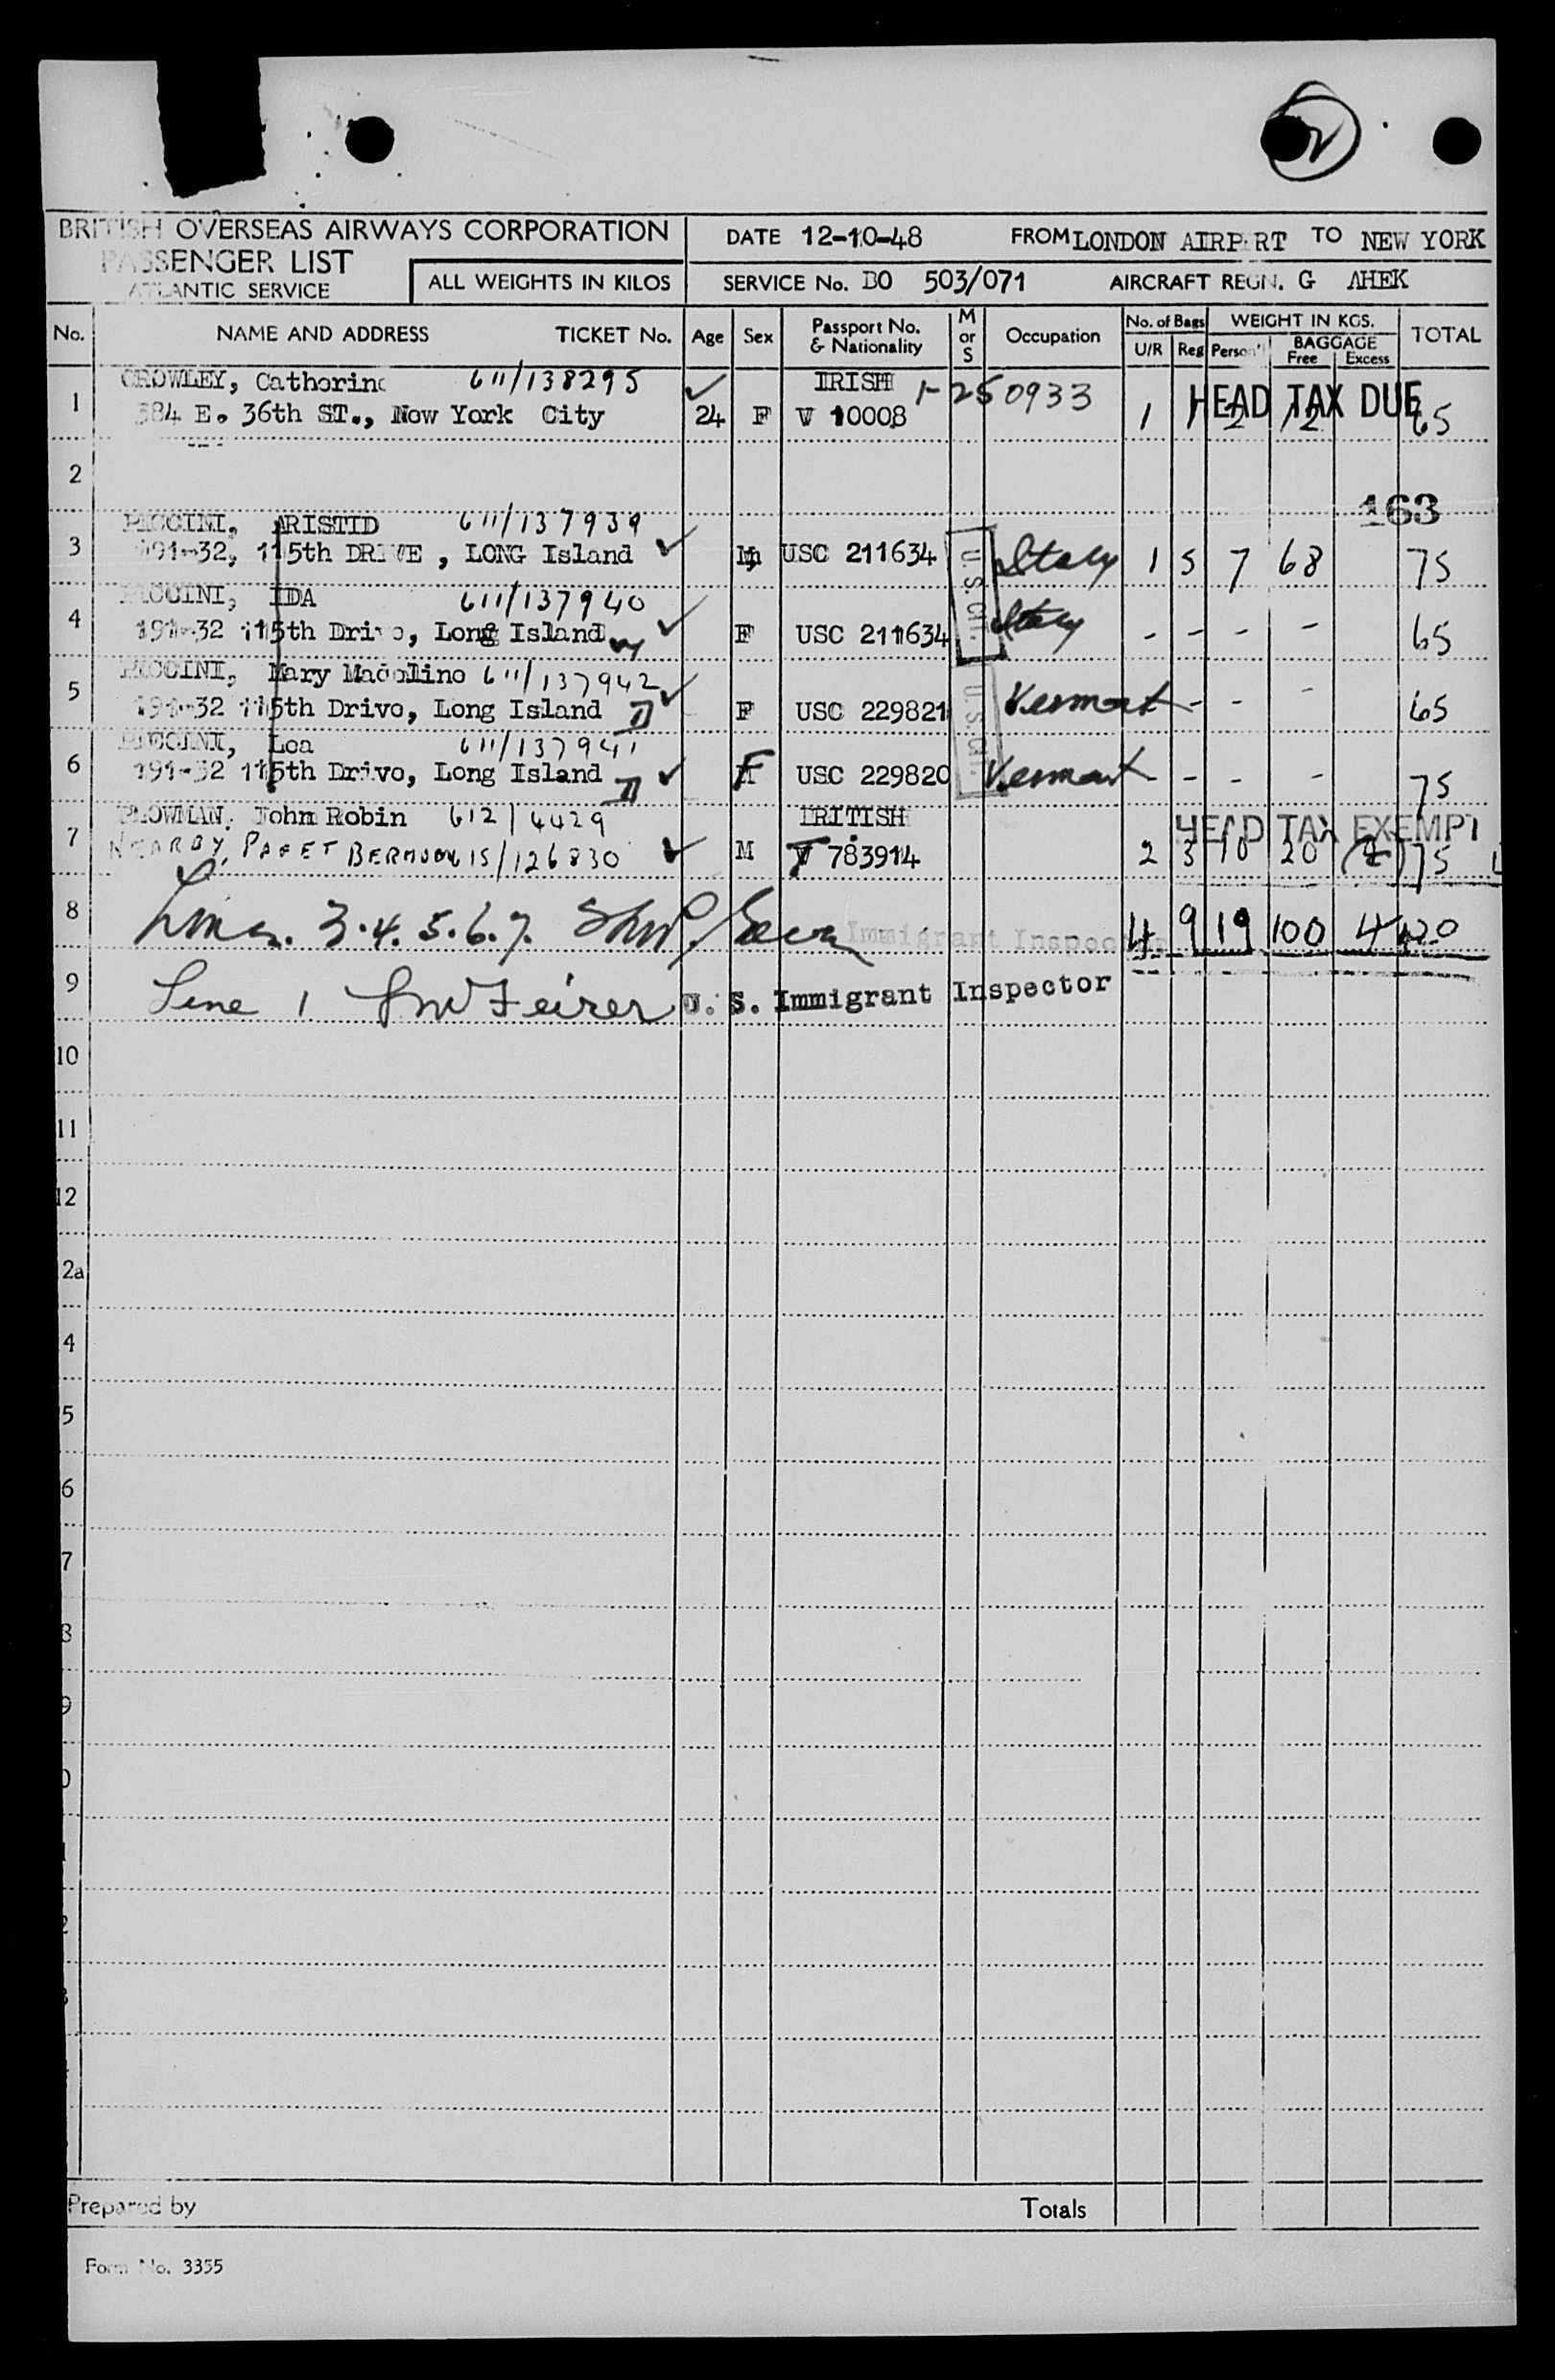 BRITISH OVERSEAS AIRWAYS CORPORATION
PASSENGER LIST
ATLANTIC SERVICE
ALL WEIGHTS IN KILOS
DATE 12-10-48 FROM LONDON AIRPORT TO NEW YORK
SERVICE No. BO 503/071 AIRCRAFT REGN. G AHEK
No. NAME AND ADDRESS TICKET No. Age Sex Passport No. & Nationality M or S Occupation No. of Bags U/R Reg WEIGHT IN KGS. Person'l BAGGAGE Free Excess TOTAL
1 CROWLEY, Catherine 611/138295 IRISH 1-250933 HEAD TAX DUE
384 E. 36th ST., New York City 24 F V 10008 1 1 2 12 65
2
163
3 PICCINI, ARISTID 611/137939
191-32, 115th DRIVE, LONG Island M USC 211634 U.S. Cit. Italy 1 5 7 68 75
4 PICCINI, IDA 611/137940
191-32 115th Drive, Long Island F USC 211634 Italy - - - - 65
5 PICCINI, Mary Madoline 611/137942
191-32 115th Drive, Long Island F USC 229821 U.S. Cit. Vermont - - - 65
6 PICCINI, Lea 611/137941
191-32 115th Drive, Long Island F USC 229820 Vermont - - - - 75
7 PLOWMAN, John Robin 612/4429 BRITISH HEAD TAX EXEMPT
NEARBY, PAGET BERMUDA 15/126830 M V 783914 2 3 10 20 75
8 Lines. 3.4.5.6.7. Immigrant Inspector 4 9 19 100 4 420
9 Line 1 U. S. Immigrant Inspector
10
11
12
2a
4
5
6
7
8
9
Prepared by Totals
Form No. 3355